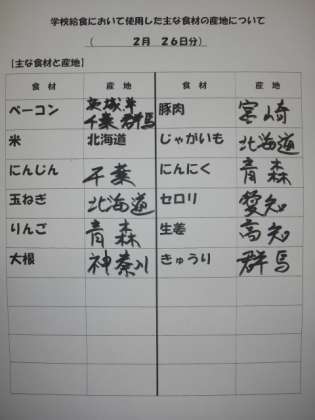 学校給食において使用した主な食材の産地について
( 2月 26日分)
[主な食材と産地]
食材 産地 食材 産地
ベーコン 茨城 千葉 群馬 豚肉 宮崎
米 北海道 じゃがいも 北海道
にんじん 千葉 にんにく 青森
玉ねぎ 北海道 セロリ 愛知
りんご 青森 生姜 高知
大根 神奈川 きゅうり 群馬